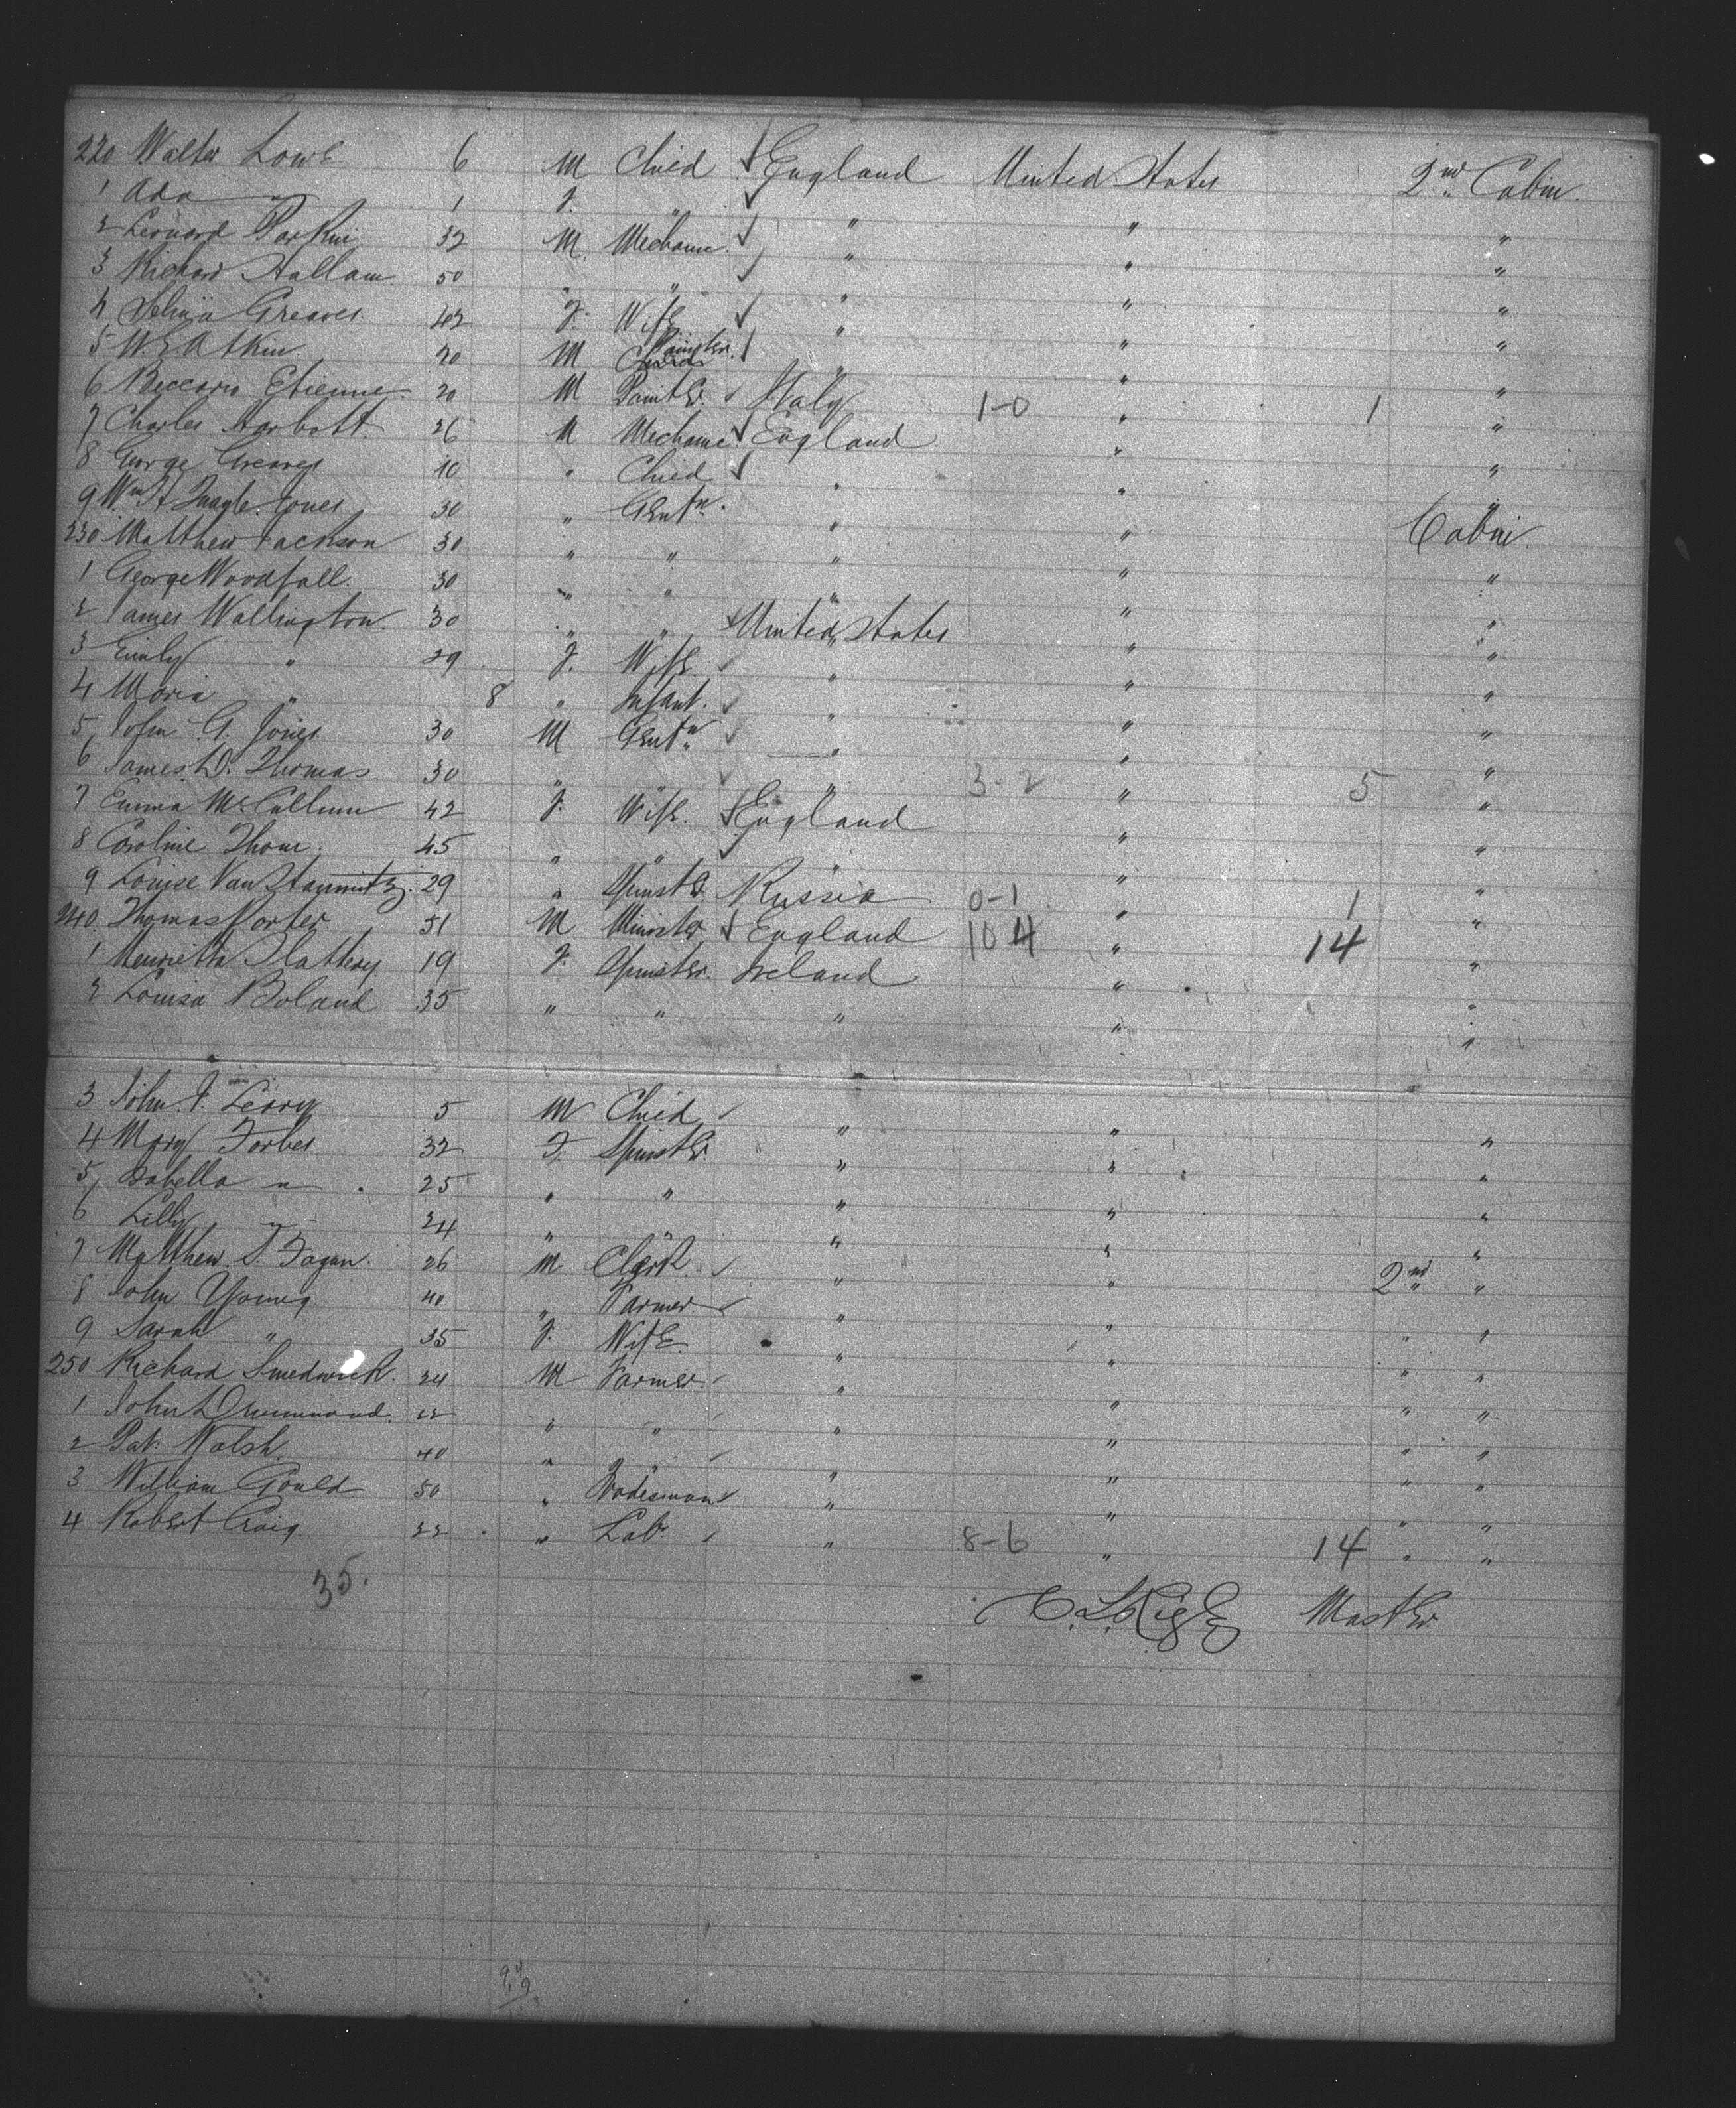 220 Walter Lowe 6 M Child ✓ England United States 2nd Cabin.
1 Ada " 1 F. " ✓ " " "
2 Leonard Parkin 32 M. Mechanic. ✓ " " "
3 Richard Hallam 50 " " ✓ " " "
4 Selina Greaves 42 F. Wife ✓ " " "
5 W. E. Atkin 20 M Painter. ✓ " " "
6 Beccaris Etienne 20 M Painter. ✓ Italy 1-0 " 1 "
7 Charles Harbott. 26 M Mechanic ✓ England " "
8 George Greaves 10 " Child ✓ " " "
9 Wm H Quayle Jones 30 " Gentn. " " Cabin.
230 Matthew Jackson 30 " " " " "
1 George Woodfall. 30 " " " " "
2 James Wallington. 30 " " United States " "
3 Emily " 29 F. Wife. ✓ " " "
4 Maria " 8 " Infant. ✓ " " "
5 John G. Jones 30 M Gentn ✓ " " "
6 James D. Thomas 30 " " ✓ " 3-2 " 5 "
7 Emma McCallum 42 F. Wife. ✓ England " "
8 Caroline Thom. 45 " " ✓ " " "
9 Louise Van 29 " Spinster Russia 0-1 " 1 "
240 Thomas Porter 51 M Minister ✓ England 10 4 " 14 "
1 Henrietta Slattery 19 F. Spinster. Ireland " "
2 Louisa Boland 35 " " " " "
3 John J. Leary 5 M Child ✓ " " "
4 Mary Forbes 32 F. Spinster. " " "
5 Isabella " 25 " " " " "
6 Lilly " 24 " " " " "
7 Matthew S. Fagan. 26 M Clerk. ✓ " " 2nd "
8 John Young 40 " Farmer. ✓ " " " "
9 Sarah " 35 F. Wife. " " " "
250 Richard Smedwick. 24 M Farmer. ✓ " " " "
1 John Drummond. 22 " " ✓ " " " "
2 Pat. Walsh 40 " " ✓ " " " "
3 William Gould 50 " Tradesman ✓ " " " "
4 Robert Craig 22 " Labr ✓ " 8-6 " 14 " "
35.
Master